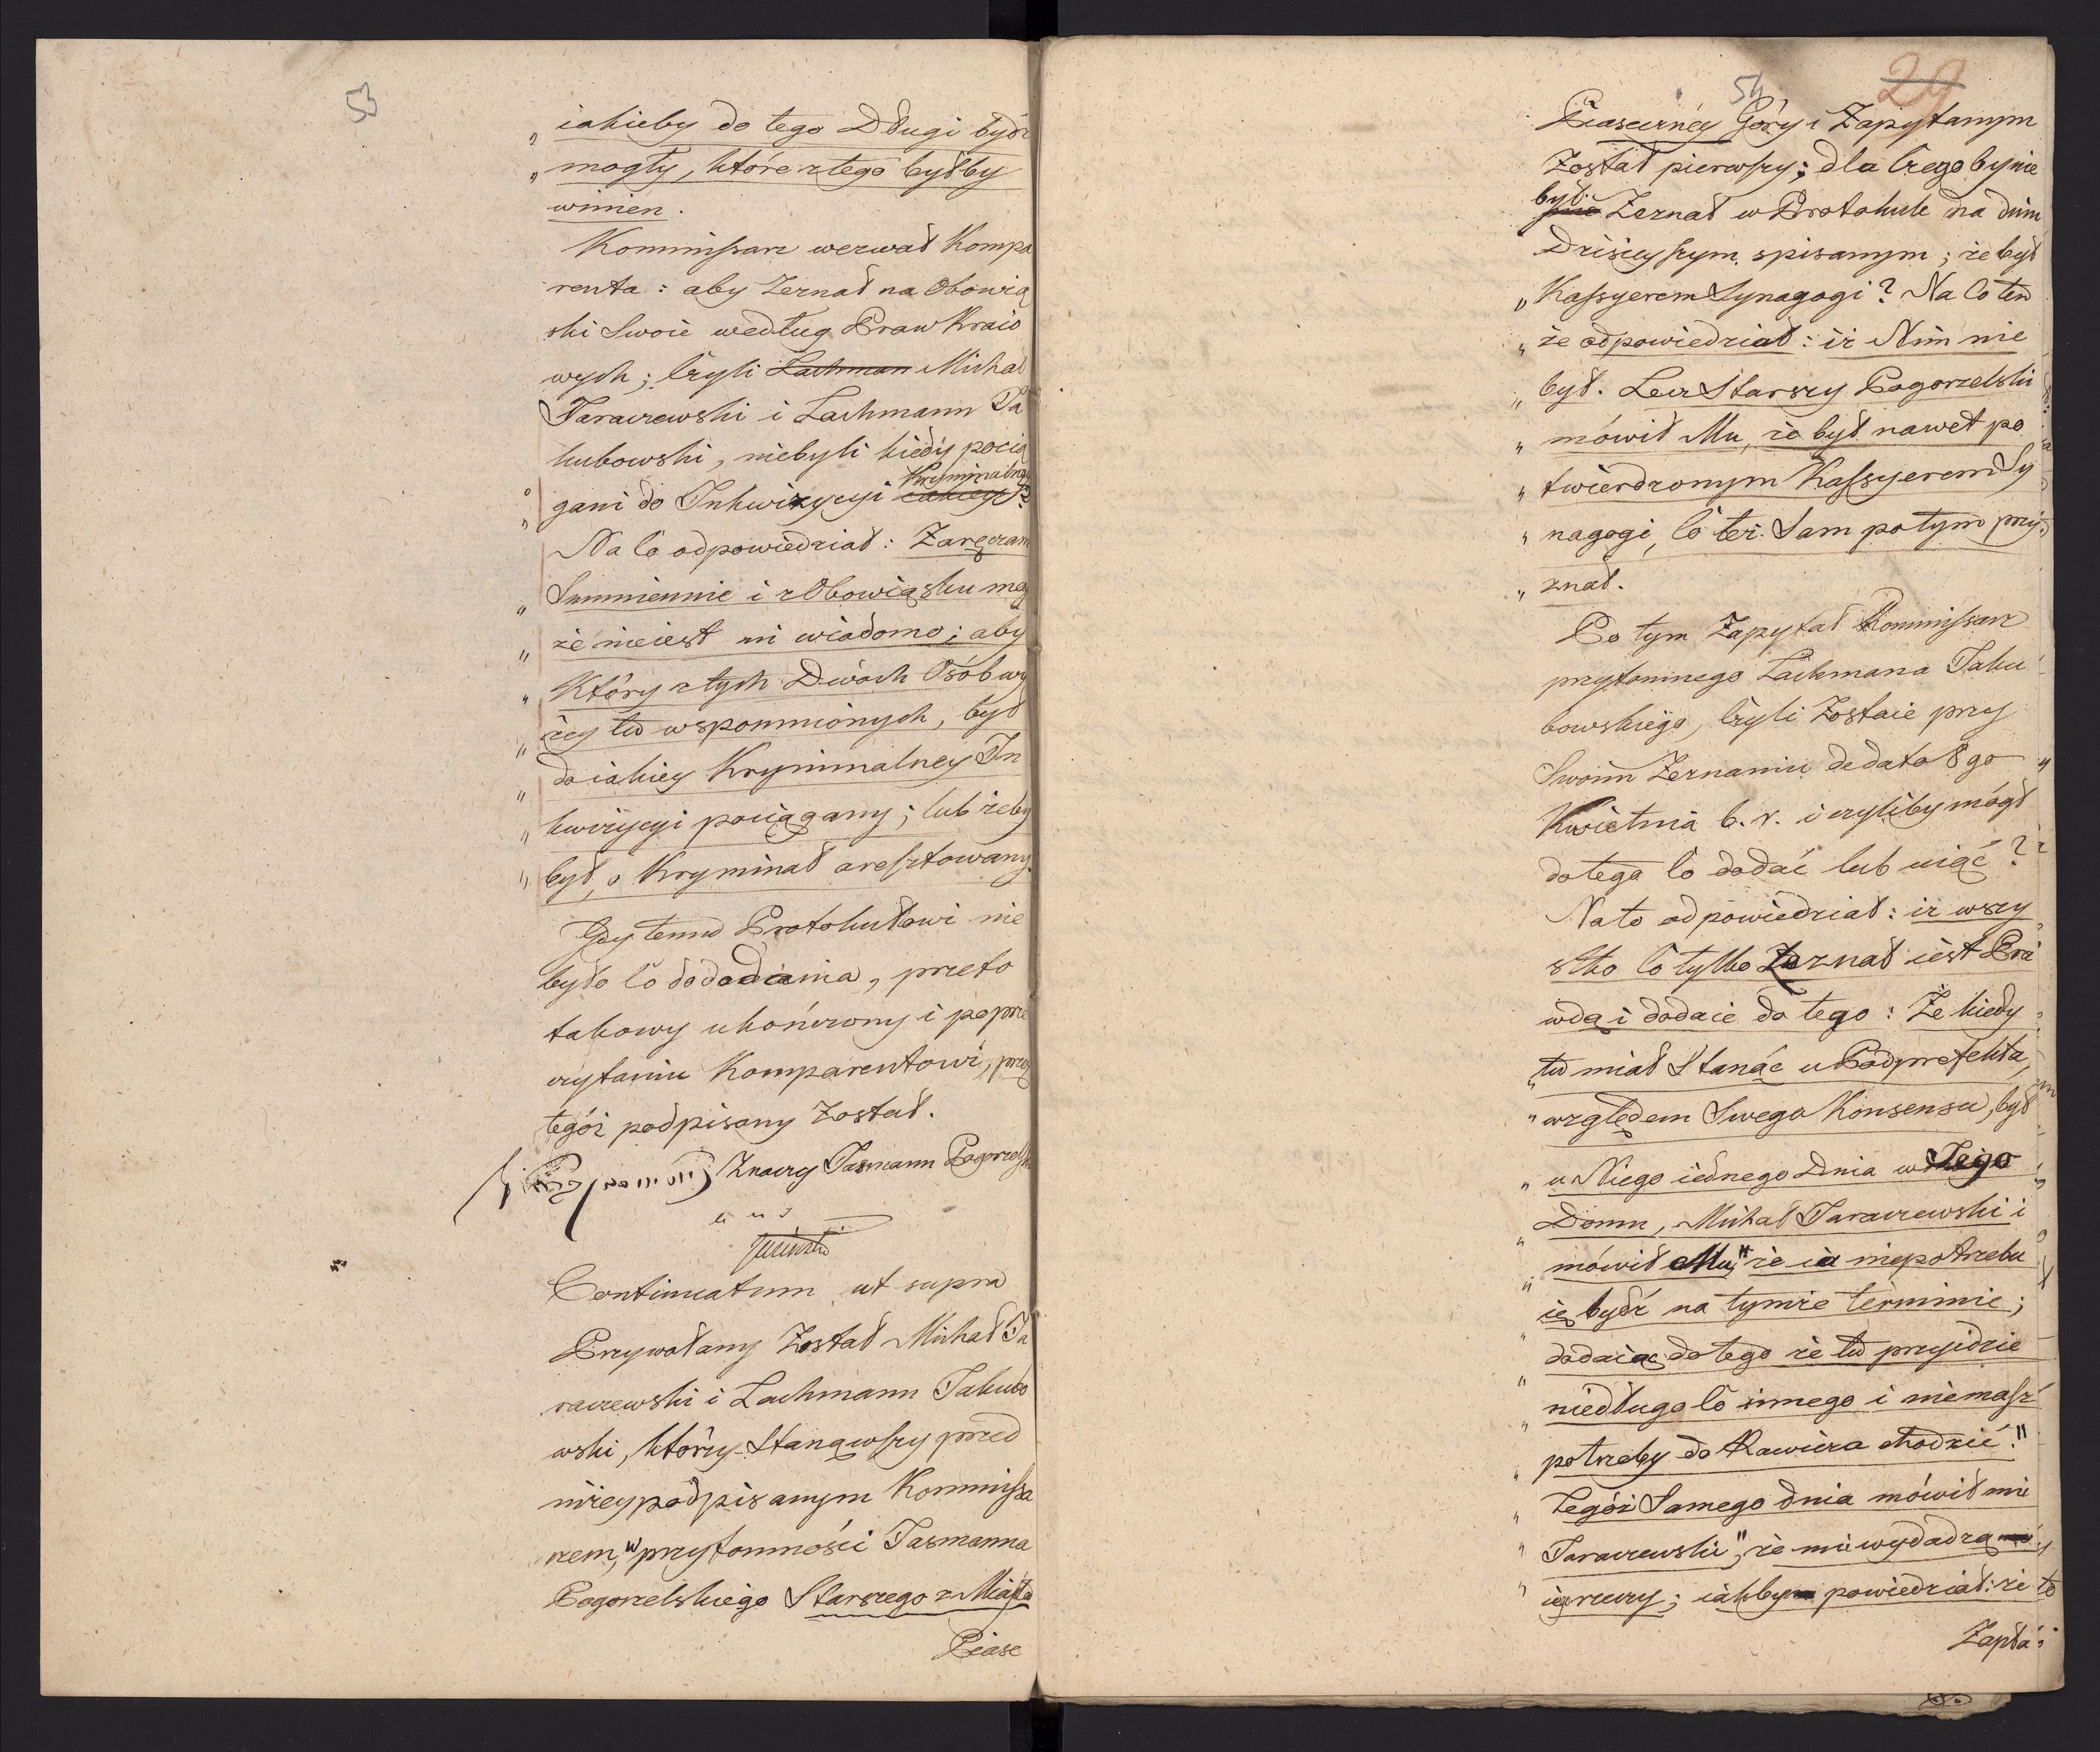 53
„ iakieby do tego Długi bydź
„ mogły, które z tego byłby
winien.
Kommissarz wezwał Kompa
renta: aby Zeznał na Obowią
ski Swoie według Praw Kraio
wych; Czyli Lachman Michał
Taraczewski i Lachmann Ja
kubowski, niebyli kiedy pocią
Kryminalney
„ gani do Inkwizycyi iakiey?
Na co odpowiedział: Zaręczam
„ Summiennie i z Obowiąsku mego
„ że nieiest mi wiadomo; aby
„ Który z tych Dwóch Osób wy
„ żey tu wspomnionych, był
„ do iakiey Kryminalney In
„ kwizycyi pociągany; lub żeby
„ był, o Kryminał aresztowany.
Gdy temu Protokułowi nie
było co dodadania, przeto
takowy ukończony i poprze
czytaniu Komparentowi, przez
tegóż podpisany Został.
Znaczy Jasmann Pogorzelski
a u s
Continuatum ut supra
Przywołany Został Michał Ta
raczewski i Lachmann Jakubo
wski, którzy Stanąwszy przed
niżey podpisanym Kommissa
rzem, w przytomności Jasmanna
Pogorzelskiego Starszego z Miasta
Piase
54
29
Piaseczney Góry i Zapytanym
Został pierwszy; dla Czego by nie
był
Zeznał w Protokule na dniu
Dzisieyszym spisanym; że był
„ Kassyerem Synagogi? Na Co ten
„ że odpowiedział: iż Nim nie
„ był. Lecz Starszy Pogorzelski
„ mówił Mu, że był nawet po
„ twierdzonym Kassyerem Sy
„ nagogi, Co też Sam potym przy
„ znał.
Po tym Zapytał Kommissarz
przytomnego Lachmana Jaku
bowskiego, Czyli Zostaie przy
Swoim Zeznaniu de dato 8go
Kwietnia b. r. i czyliby mógł
do tego Co dodać lub uiąć?
Na to odpowiedział: iż wszy
stko Co tylko Zeznał iest Pra
wdą i dodaie do tego: Że kiedy
„ tu miał Stanąć u Podprefekta,
„ względem Swego Konsensu, był
„ u Niego iednego Dnia w Jego
„ Domu, Michał Taraczewski i
„ mówił Mu," że ia niepotrzebu
ię bydź na tymże terminie;
„ dodaiąc do tego że tu przyidzie
„ niedługo Co innego i niemasz
„ potrzeby do Rawicza chodzić."
„ Tegóż Samego dnia mówił mi
„ Taraczewski," że mi wydadzą
„ ięgo rzeczy; iakby powiedział: że to
Zapła